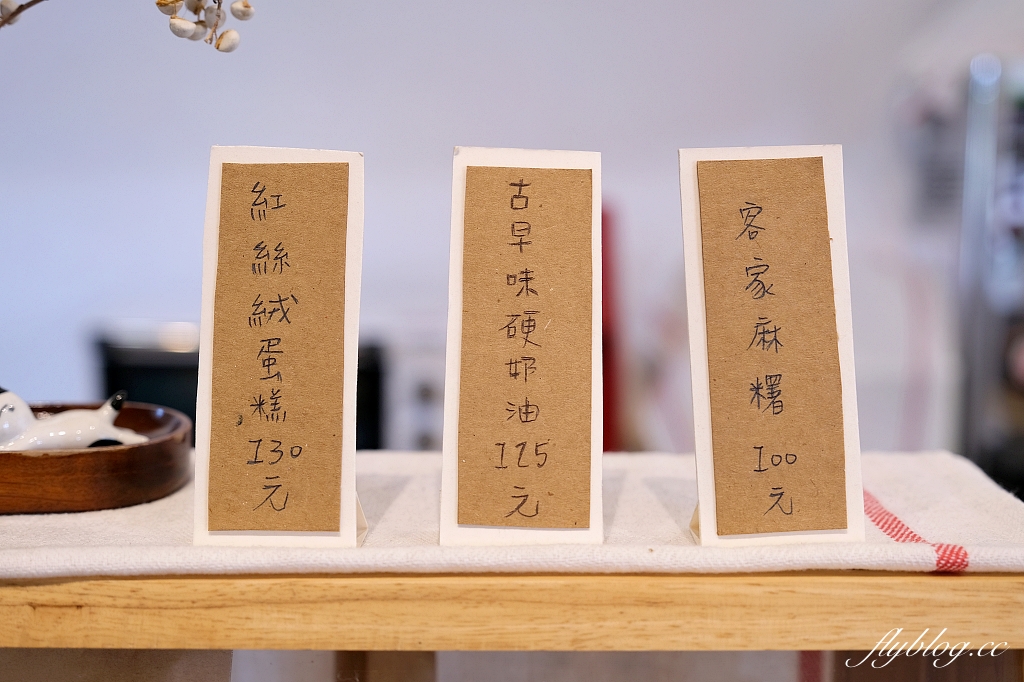 紅絲絨蛋糕
130
元
古早味硬奶油
125
元
客家麻糬
100
元
flyblog.cc